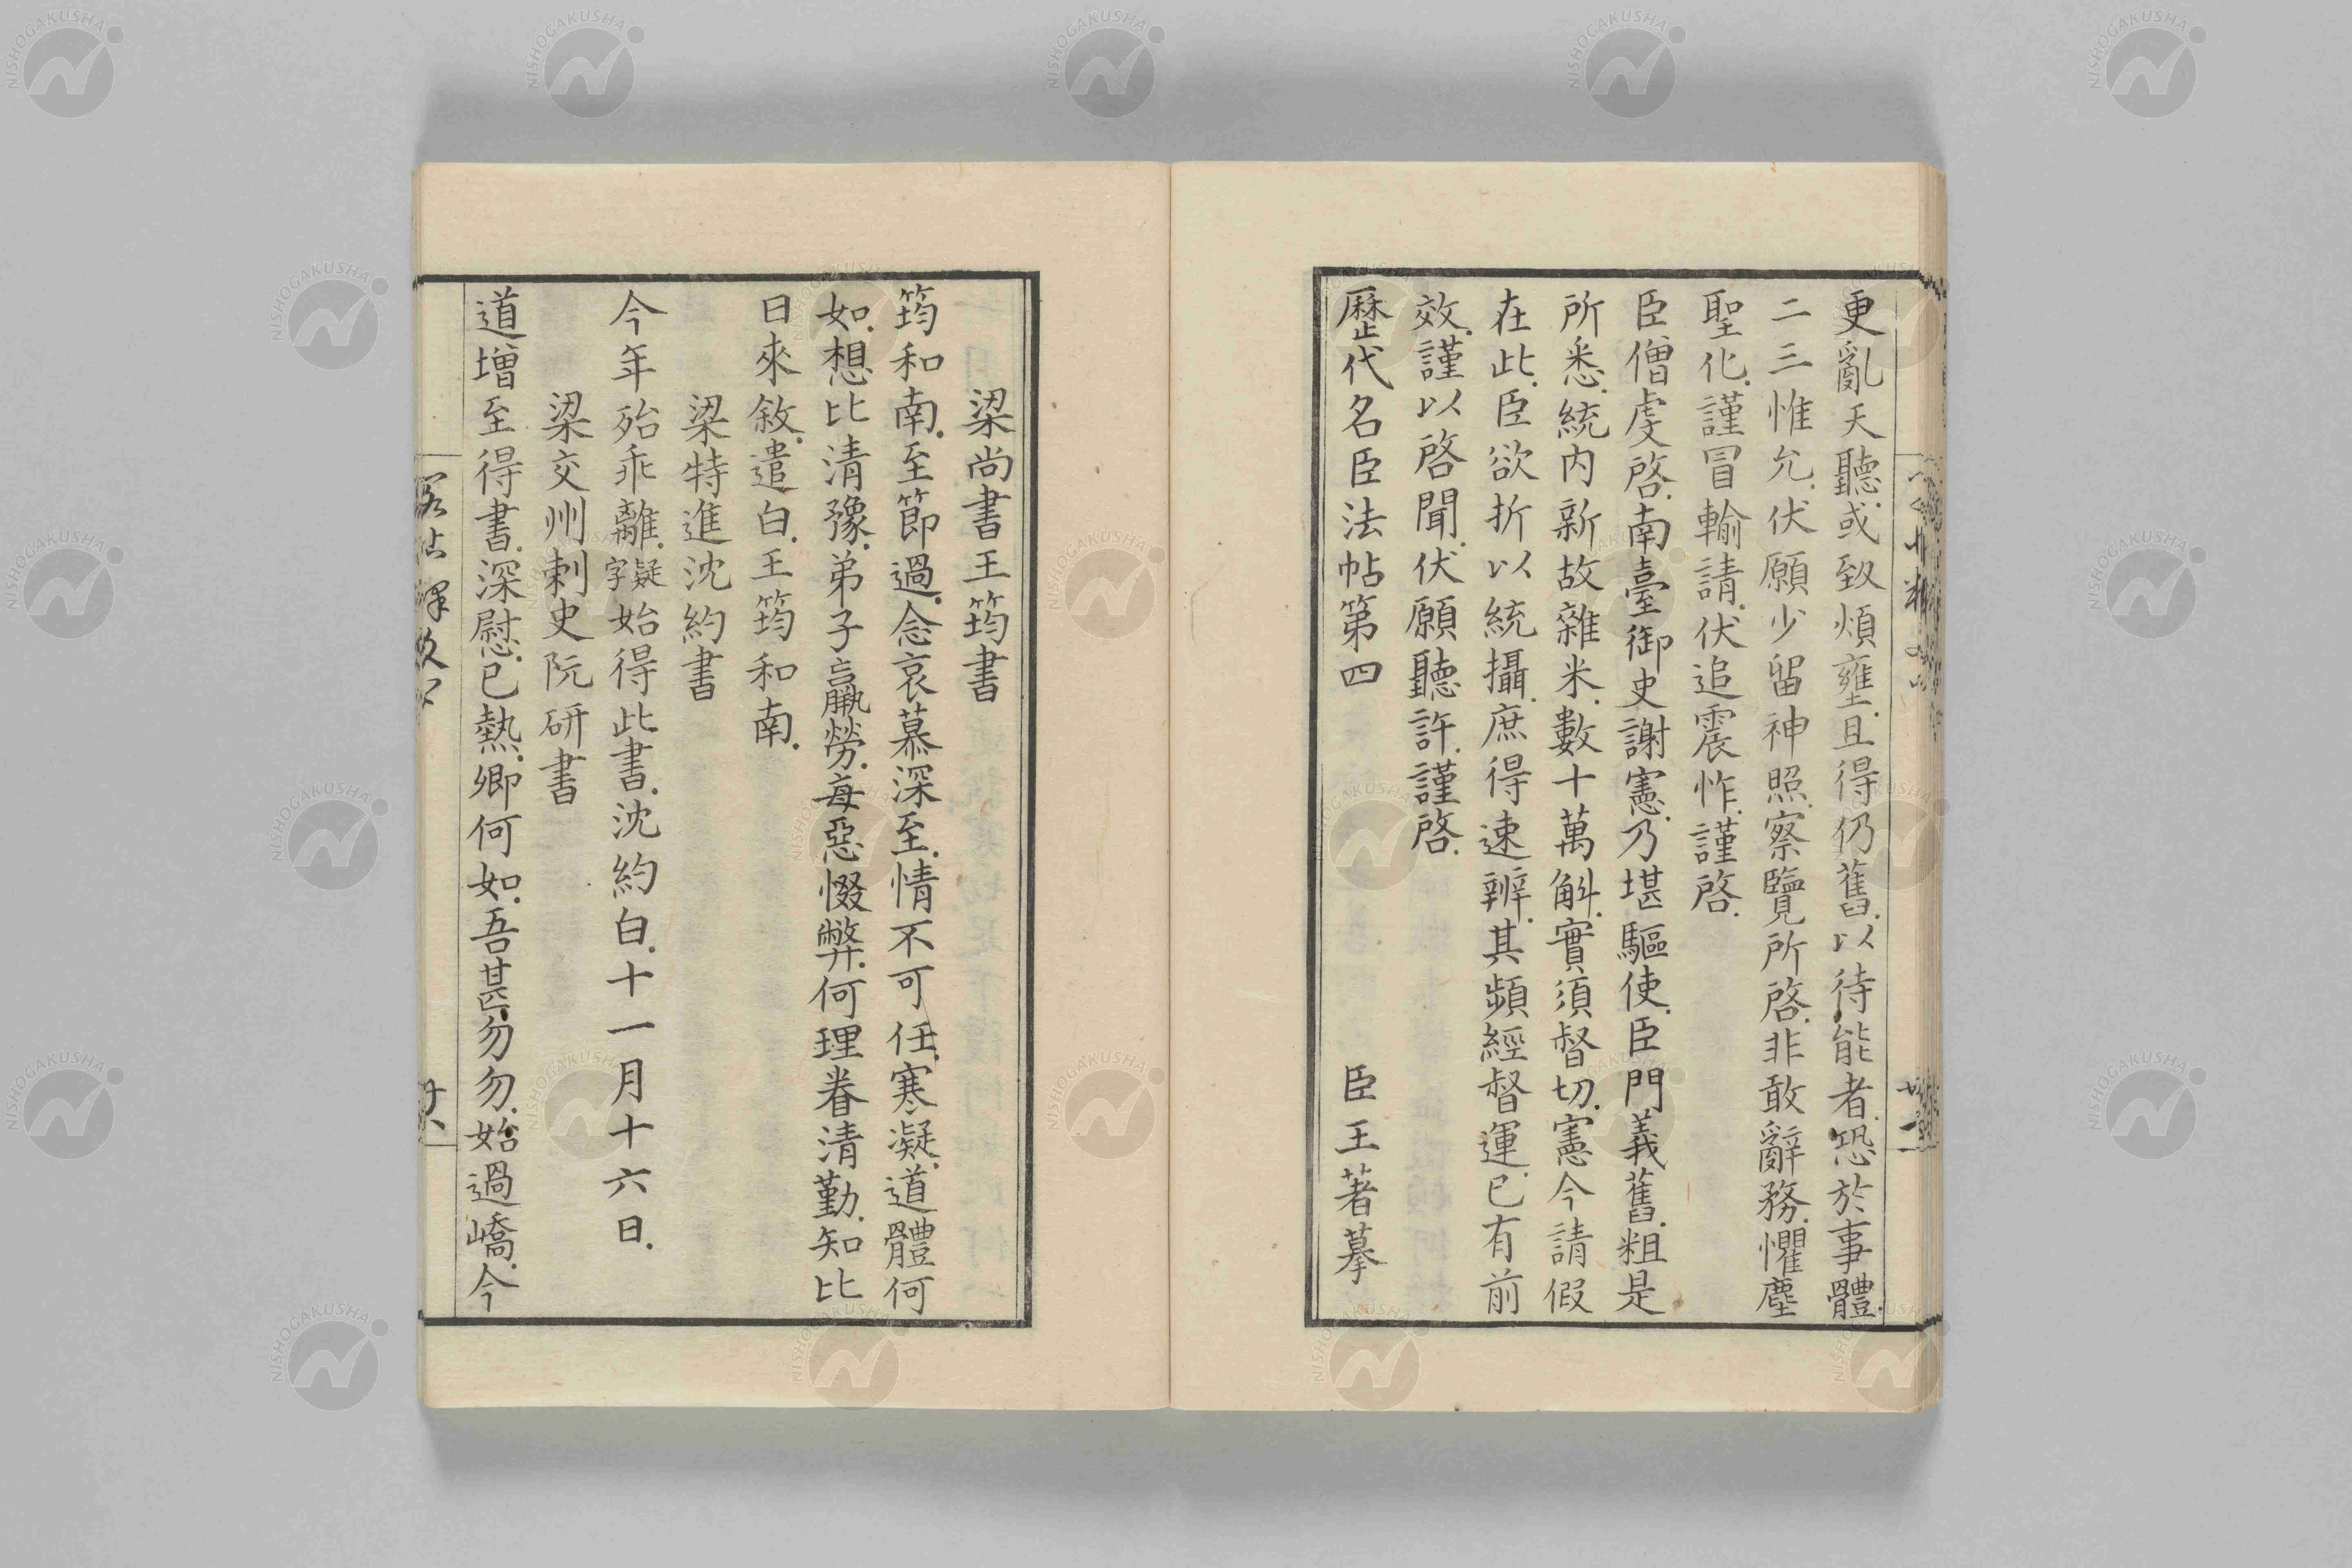 更亂天聽.或致煩壅.且得仍舊.以待能者.恐於事體.
二三惟允.伏願少留神照.察覽所啓.非敢辭務.懼塵
聖化.謹冒輸請.伏追震怍.謹啓.
臣僧虔啓.南臺御史謝憲.乃堪驅使.臣門義舊.粗是
所悉.統内新故雜米.數十萬斛.實須督切.憲今請假
在此.臣欲折以統攝.庶得速辨.其頻經督運.已有前
效.謹以啓聞.伏願聽許.謹啓.
歷代名臣法帖第四 臣王著摹
梁尚書王筠書
筠和南.至節過.念哀慕深至.情不可任.寒凝.道體何
如.想比清豫.弟子羸勞.每惡惙弊.何理眷清勤.知比
日來敘.遣白.王筠和南.
梁特進沈約書
今年殆乖離.疑字始得此書.沈約白.十一月十六日.
梁交州刺史阮研書
道增至得書.深慰.已熱.卿何如.吾甚勿勿.始過嶠.今
閣帖釋文